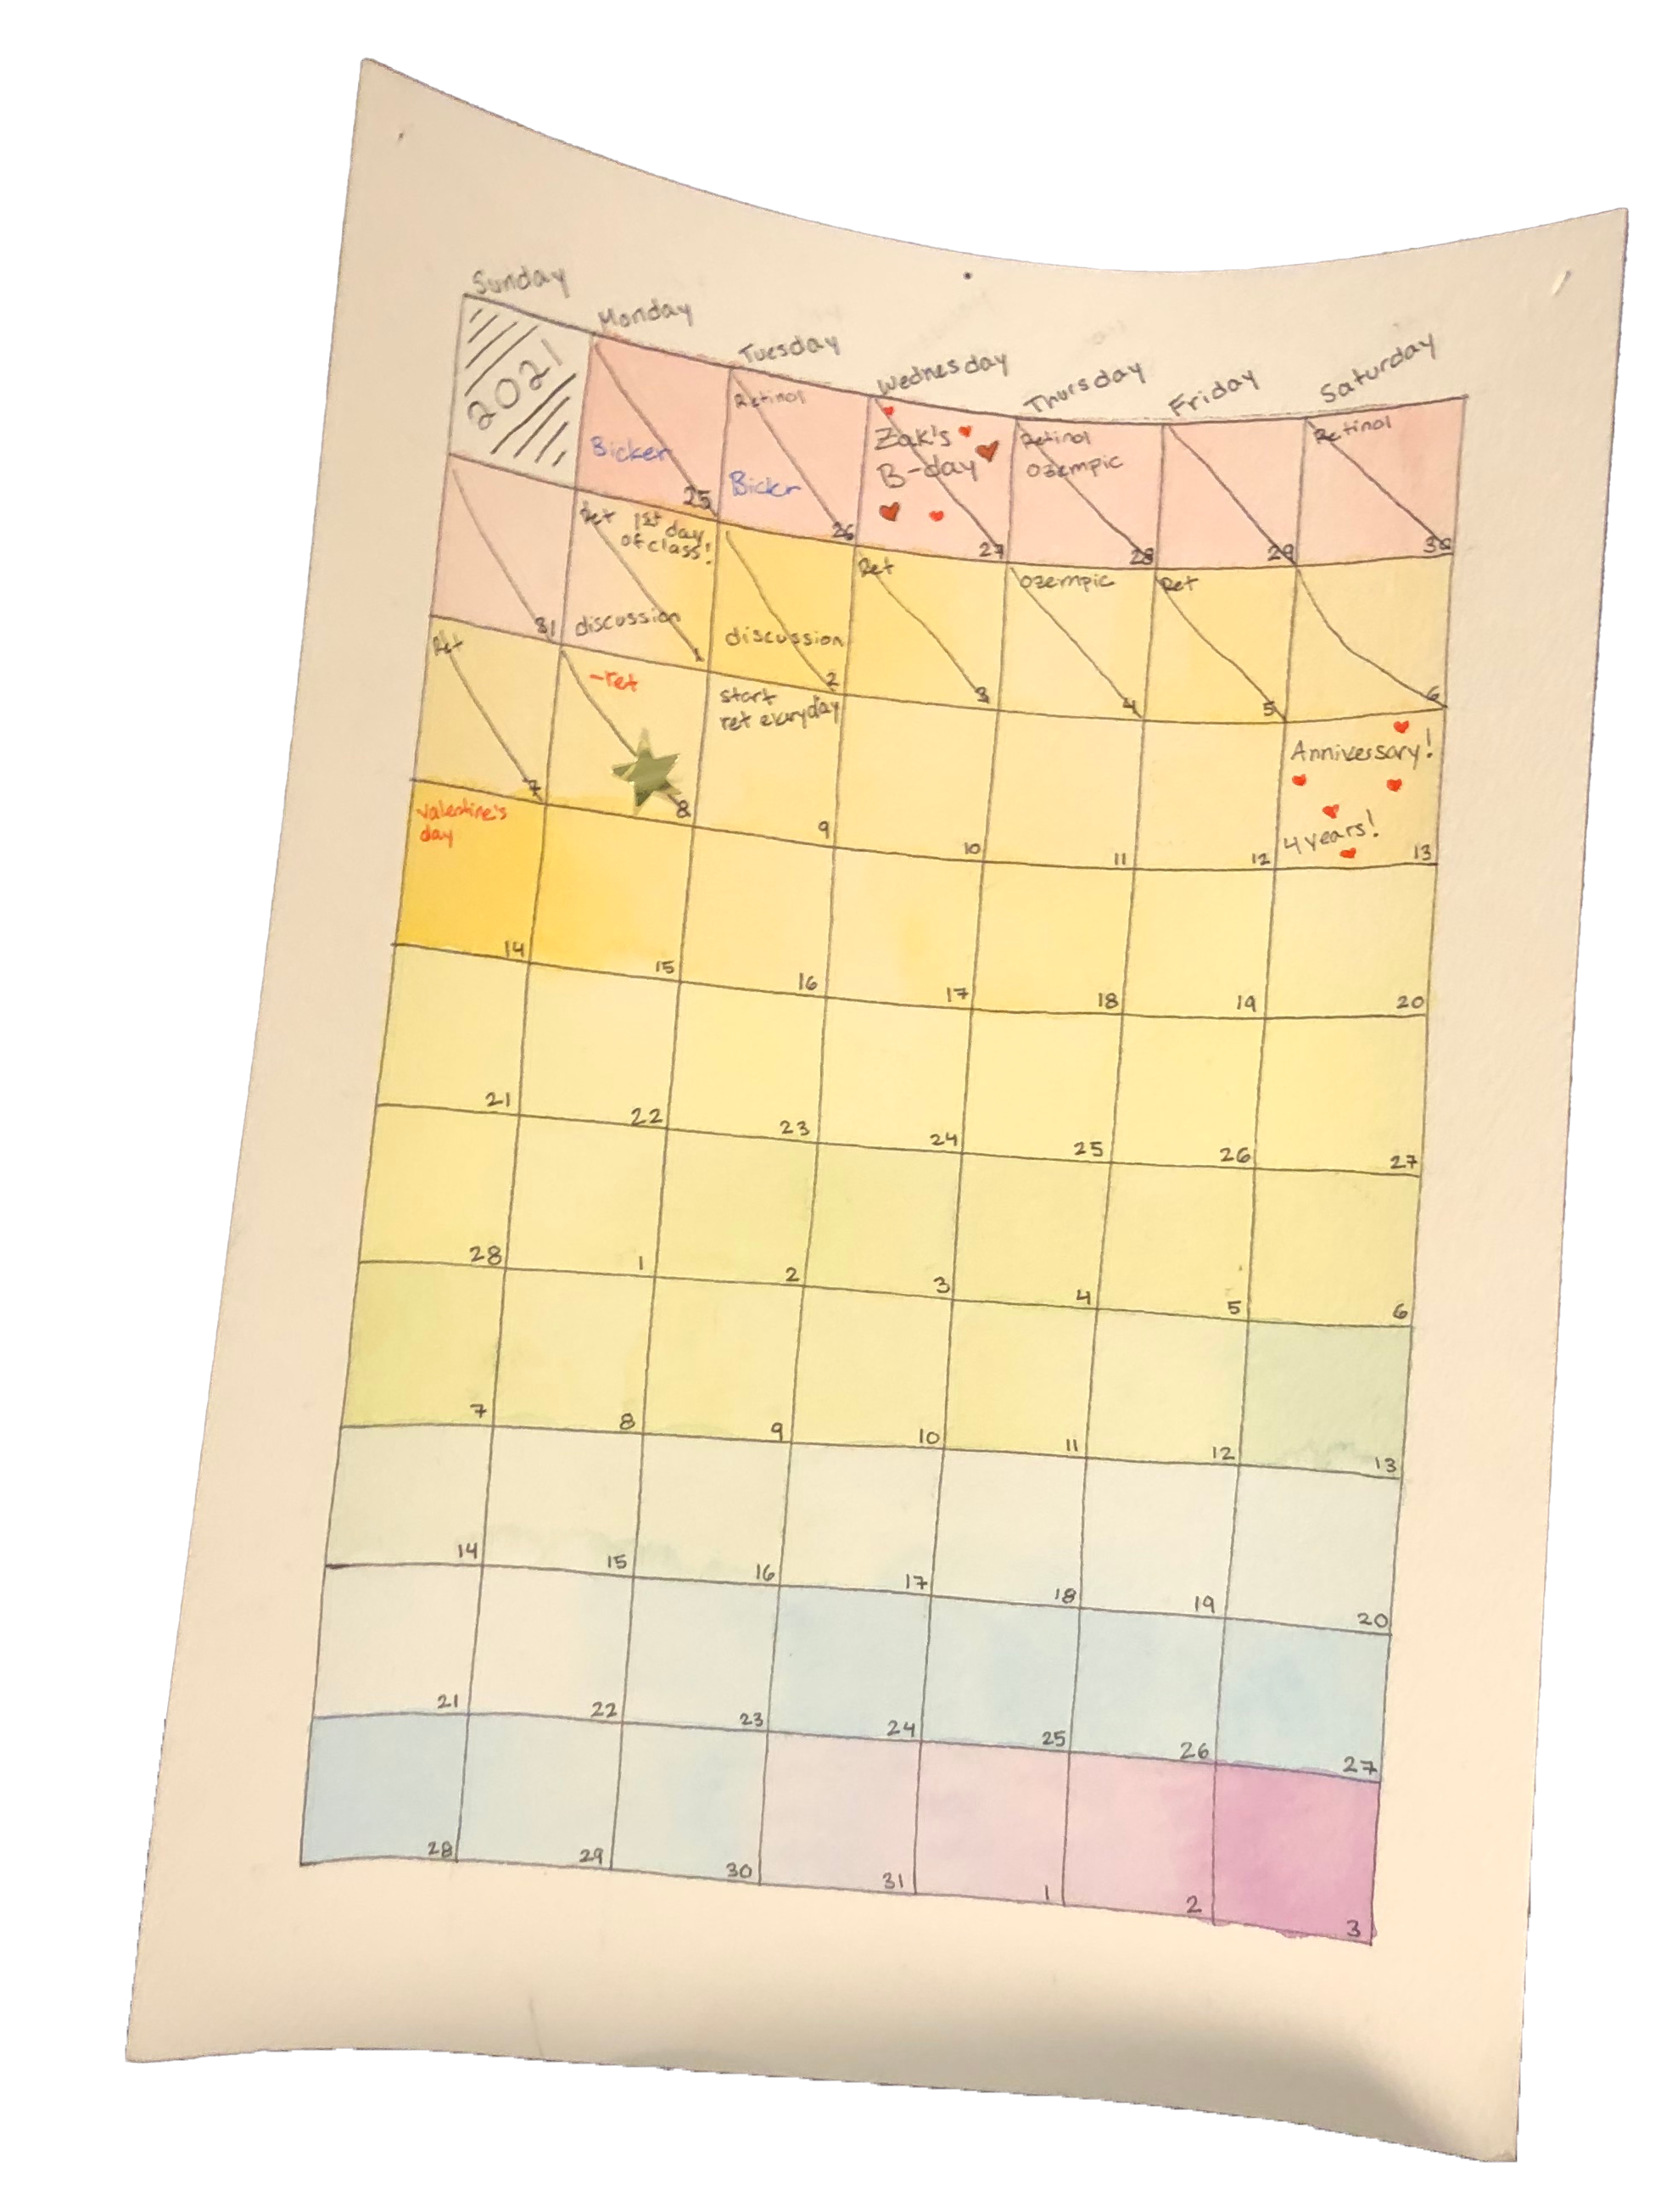 Sunday Monday Tuesday Wednesday Thursday Friday Saturday
2021
Bicker
25
Retinol
Bickr
26
Zak's
B-day
27
Retinol
Ozempic
28
29
Retinol
30
31
Ret 1st day
of class!
discussion
1
discussion
2
Ret
3
Ozempic
4
Ret
5
6
Ret
7
-ret
8
start
ret everyday
9
10
11
12
Anniversary!
4 years!
13
Valentine's
day
14
15
16
17
18
19
20
21
22
23
24
25
26
27
28
1
2
3
4
5
6
7
8
9
10
11
12
13
14
15
16
17
18
19
20
21
22
23
24
25
26
27
28
29
30
31
1
2
3